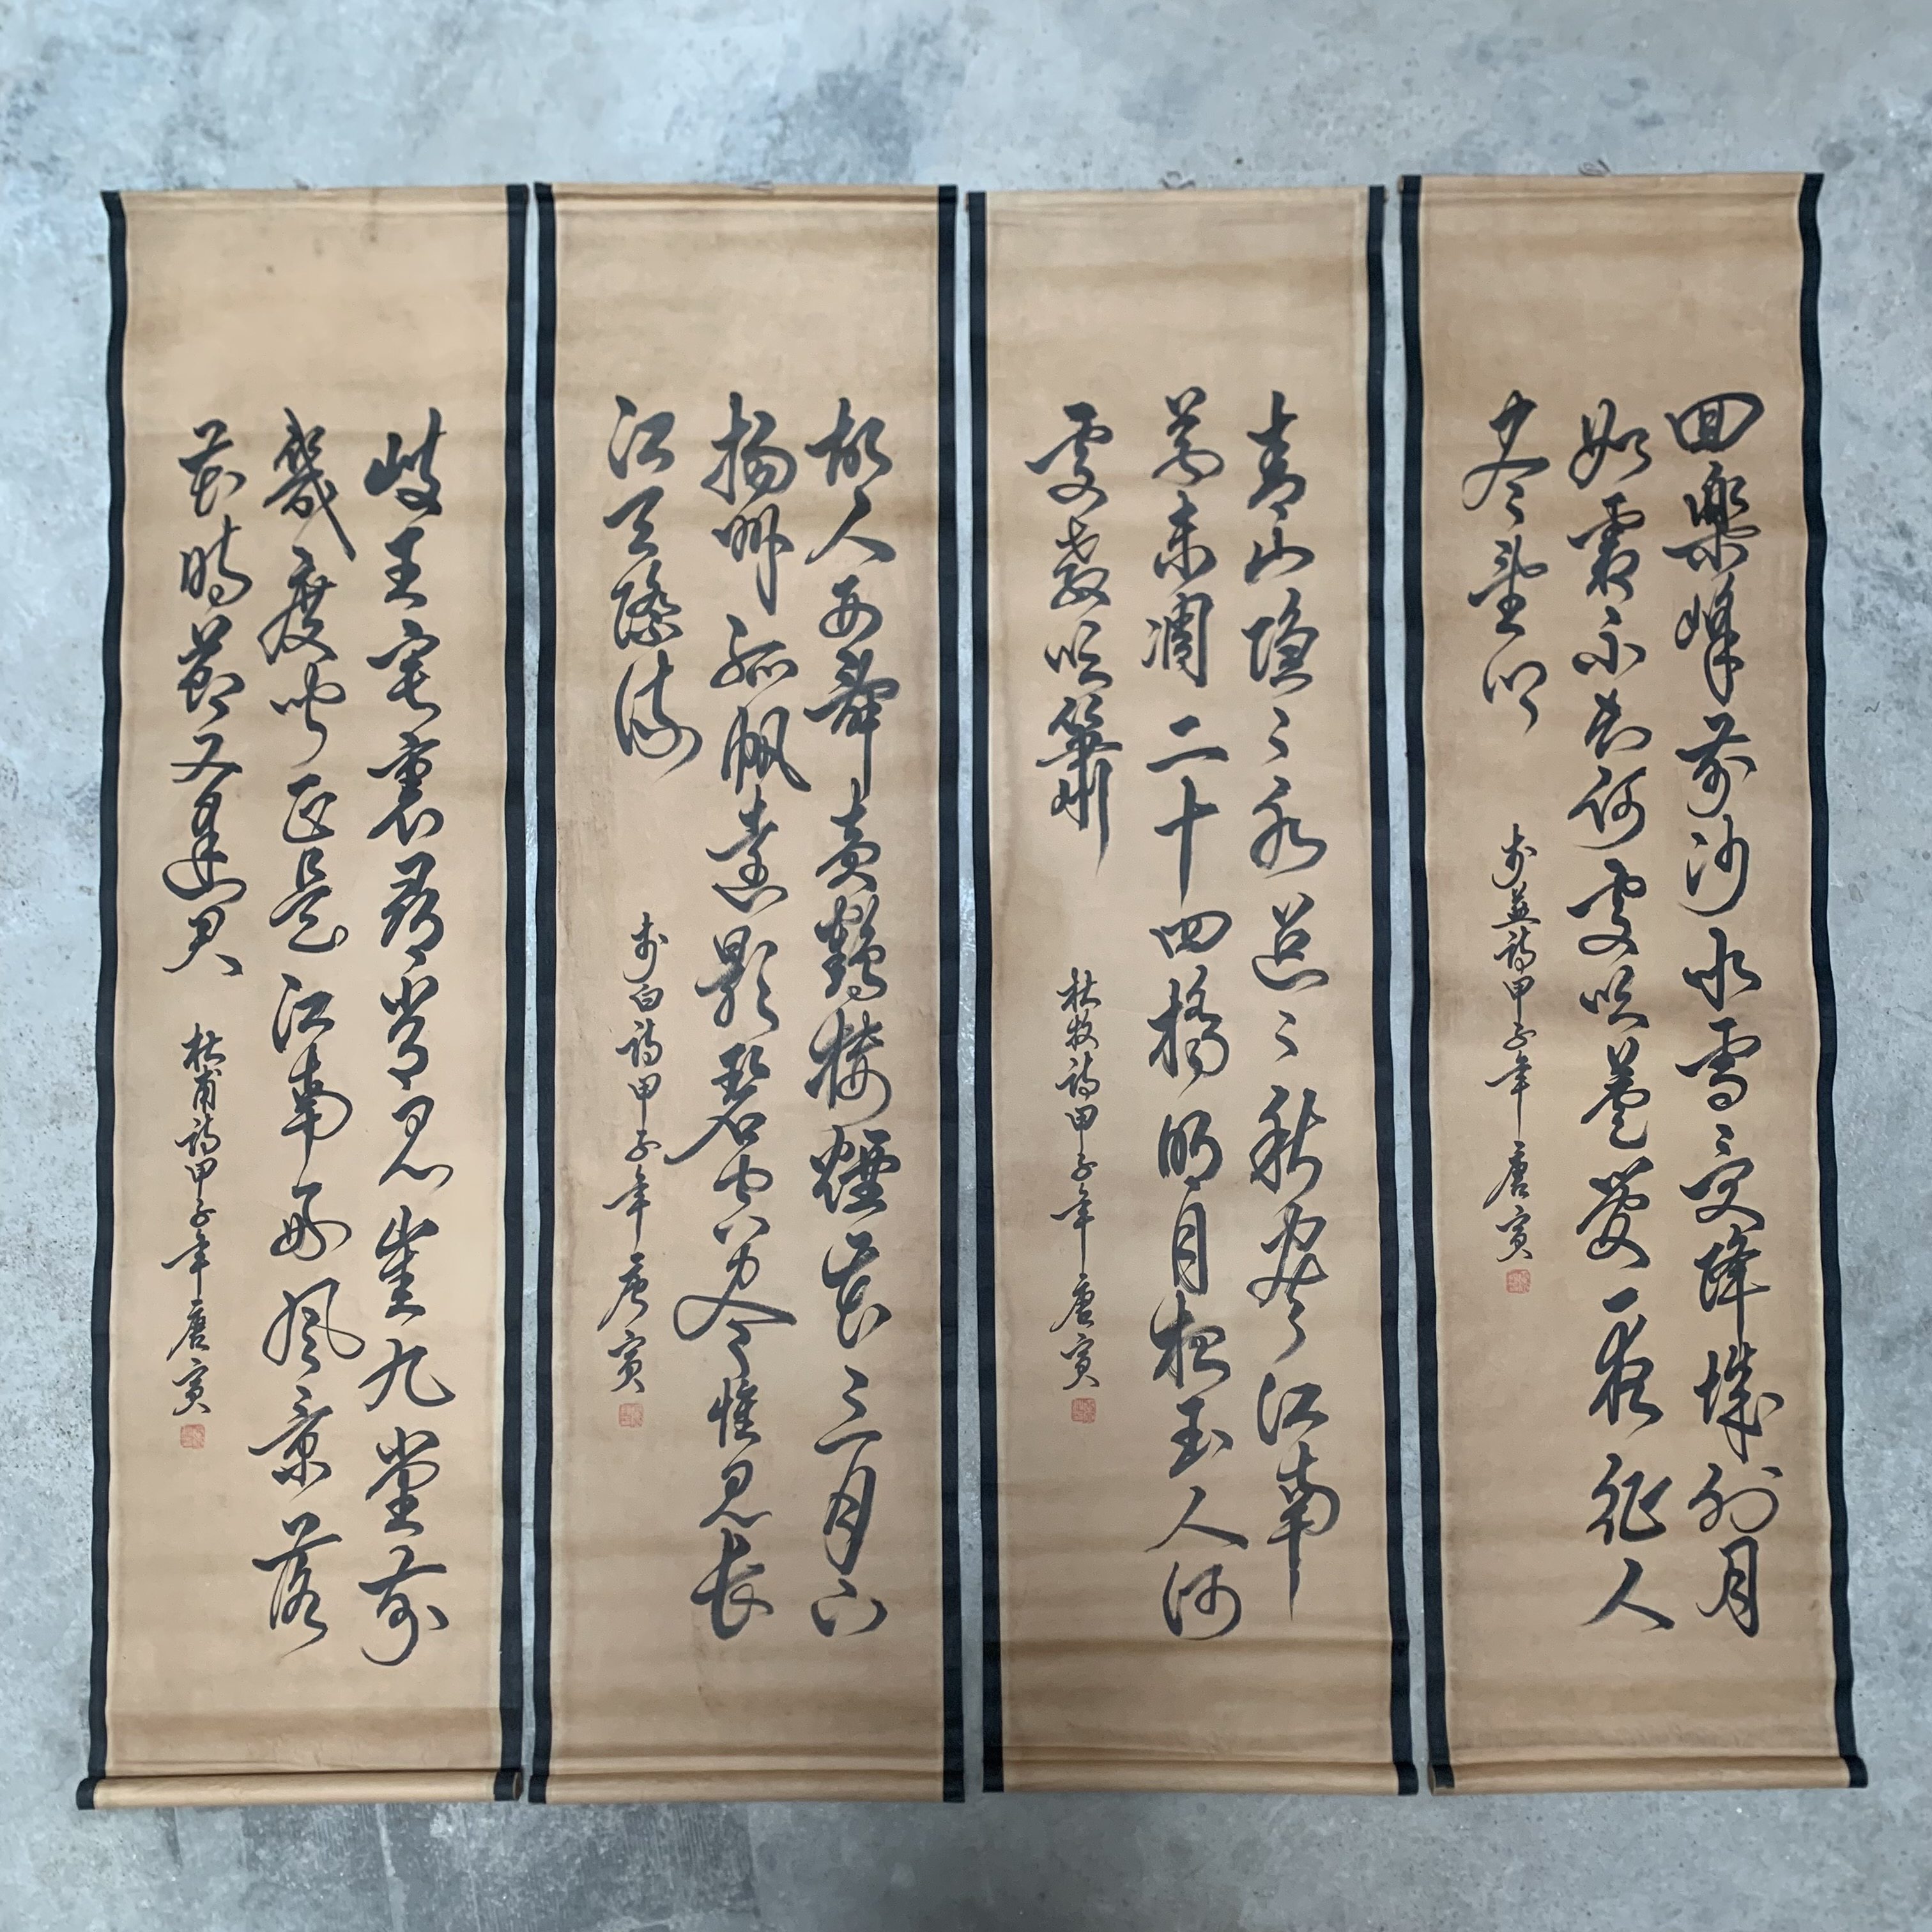 回樂峰前沙似雪受降城外月
如霜不知何處吹蘆管一夜征人
尽望鄉
李益詩甲子年唐寅
青山隱〻水迢〻秋盡江南
草未凋二十四橋明月夜玉人何
處教吹簫
杜牧詩甲子年唐寅
故人西辭黃鶴樓煙花三月下
揚州孤帆遠影碧空尽惟見長
江天際流
李白詩甲子年唐寅
岐王宅裏尋常見崔九堂前
幾度聞正是江南好風景落
花時節又逢君
杜甫詩甲子年唐寅